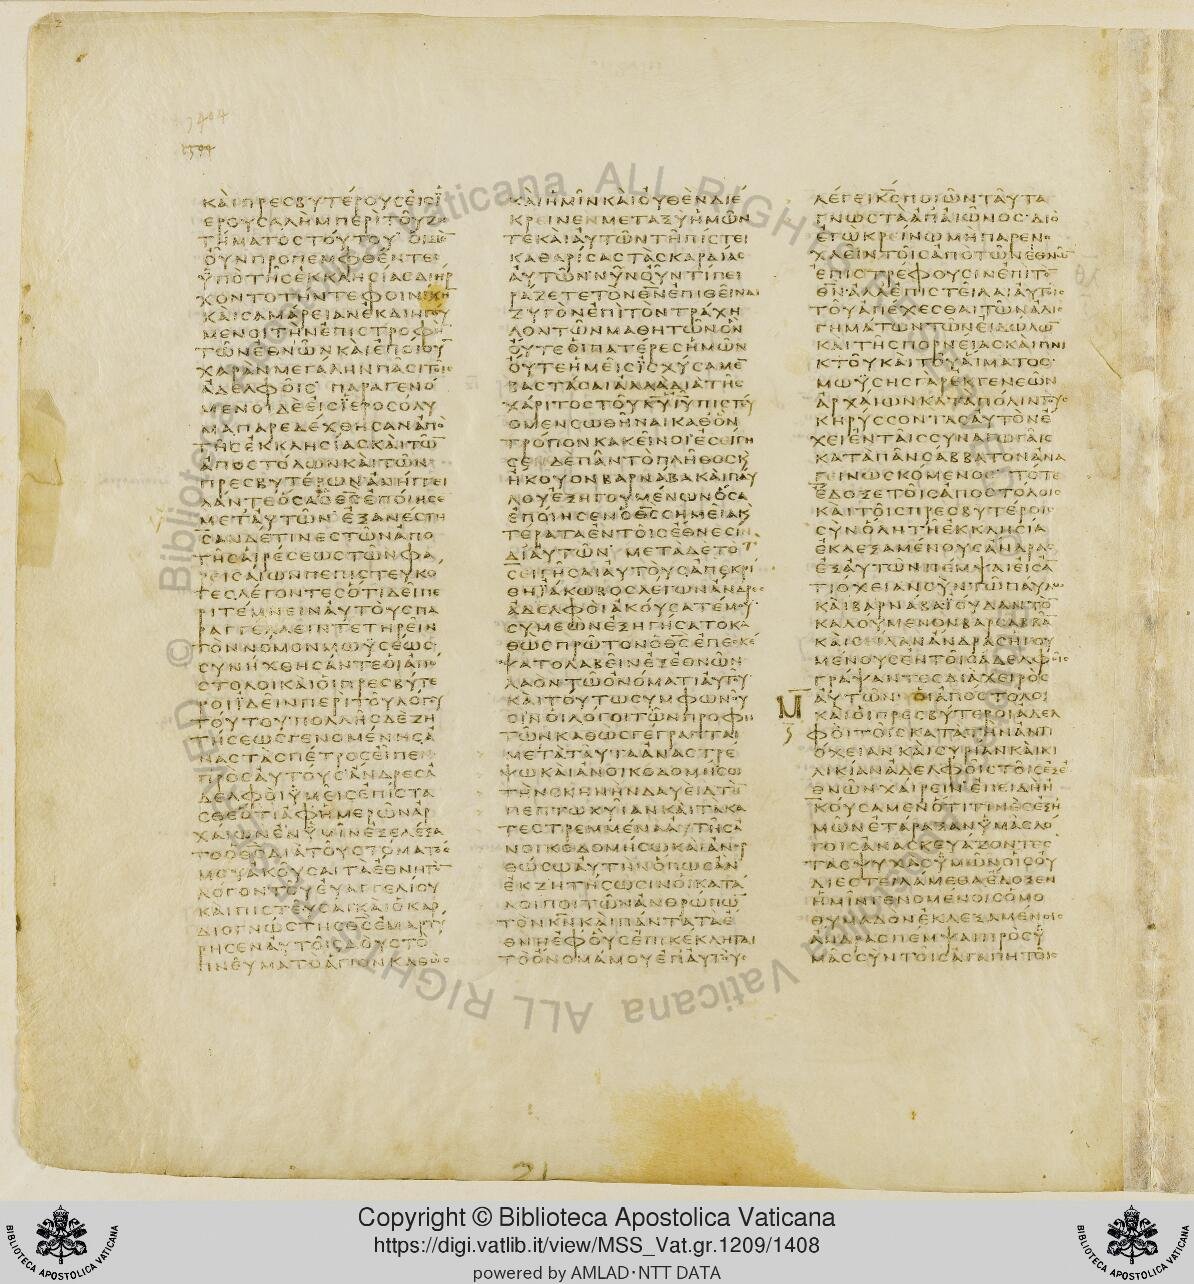 ΚΑΙΠΡΕϹΒΥΤΕΡΟΥϹΕΙϹΪ
ΕΡΟΥϹΑΛΗΜΠΕΡΙΤΟΥΖΗ
ΤΗΜΑΤΟϹΤΟΥΤΟΥ ΟΙΜΕ̅
ΟΥΝΠΡΟΠΕΜΦΘΕΝΤΕϹ
ΫΠΟΤΗϹΕΚΚΛΗϹΙΑϹΔΙΗΡ
ΧΟΝΤΟΤΗΝΤΕΦΟΙΝΙΚΗ
ΚΑΙϹΑΜΑΡΕΙΑΝΕΚΔΙΗΓΟΥ
ΜΕΝΟΙΤΗΝΕΠΙϹΤΡΟΦΗ̅
ΤΩΝΕΘΝΩΝΚΑΙΕΠΟΙΟΥ
ΧΑΡΑΝΜΕΓΑΛΗΝΠΑϹΙΤΟΙϹ
ΑΔΕΛΦΟΙϹ ΠΑΡΑΓΕΝΟ
ΜΕΝΟΙΔΕΕΙϹΪΕΡΟϹΟΛΥ
ΜΑΠΑΡΕΔΕΧΘΗϹΑΝΑΠΟ
ΤΗϹΕΚΚΛΗϹΙΑϹΚΑΙΤΩ̅
ΑΠΟϹΤΟΛΩΝΚΑΙΤΩΝ
ΠΡΕϹΒΥΤΕΡΩΝΑΝΗΓΓΕΙ
ΛΑΝΤΕΟϹΑΟΘ̅Ϲ̅ΕΠΟΙΗϹΕ
ΜΕΤΑΥΤΩΝ ΕΞΑΝΕϹΤΗ
ϹΑΝΔΕΤΙΝΕϹΤΩΝΑΠΟ
ΤΗϹΑΙΡΕϹΕΩϹΤΩΝΦΑ
ΡΕΙϹΑΙΩΝΠΕΠΙϹΤΕΥΚΟ
ΤΕϹΛΕΓΟΝΤΕϹΟΤΙΔΕΙΠΕ
ΡΙΤΕΜΝΕΙΝΑΥΤΟΥϹΠΑ
ΡΑΓΓΕΛΛΕΙΝΤΕΤΗΡΕΙΝ
ΤΟΝΝΟΜΟΝΜΩΫϹΕΩϹ
ϹΥΝΗΧΘΗϹΑΝΤΕΟΙΑΠΟ
ϹΤΟΛΟΙΚΑΙΟΙΠΡΕϹΒΥΤΕ
ΡΟΙΪΔΕΙΝΠΕΡΙΤΟΥΛΟΓΟΥ
ΤΟΥΤΟΥ ΠΟΛΛΗϹΔΕΖΗ
ΤΗϹΕΩϹΓΕΝΟΜΕΝΗϹΑ
ΝΑϹΤΑϹΠΕΤΡΟϹΕΙΠΕΝ
ΠΡΟϹΑΥΤΟΥϹΑΝΔΡΕϹΑ
ΔΕΛΦΟΙΫΜΕΙϹΕΠΙϹΤΑ
ϹΘΕΟΤΙΑΦΗΜΕΡΩΝΑΡ
ΧΑΙΩΝΕΝΫΜΙΝΕΞΕΛΕΞΑ
ΤΟΟΘ̅Ϲ̅ΔΙΑΤΟΥϹΤΟΜΑΤΟϹ
ΜΟΥΑΚΟΥϹΑΙΤΑΕΘΝΗΤΟ̅
ΛΟΓΟΝΤΟΥΕΥΑΓΓΕΛΙΟΥ
ΚΑΙΠΙϹΤΕΥϹΑΙΚΑΙΟΚΑΡ
ΔΙΟΓΝΩϹΤΗϹΘ̅Ϲ̅ΕΜΑΡΤΥ
ΡΗϹΕΝΑΥΤΟΙϹΔΟΥϹΤΟ
ΠΝΕΥΜΑΤΟΑΓΙΟΝΚΑΘΩϹ
ΚΑΙΗΜΙΝΚΑΙΟΥΘΕΝΔΙΕ
ΚΡΕΙΝΕΝΜΕΤΑΞΥΗΜΩΝ
ΤΕΚΑΙΑΥΤΩΝΤΗΠΙϹΤΕΙ
ΚΑΘΑΡΙϹΑϹΤΑϹΚΑΡΔΙΑϹ
ΑΥΤΩΝ ΝΥΝΟΥΝΤΙΠΕΙ
ΡΑΖΕΤΕΤΟΝΘ̅Ν̅ΕΠΙΘΕΙΝΑΙ
ΖΥΓΟΝΕΠΙΤΟΝΤΡΑΧΗ
ΛΟΝΤΩΝΜΑΘΗΤΩΝΟΝ
ΟΥΤΕΟΙΠΑΤΕΡΕϹΗΜΩΝ
ΟΥΤΕΗΜΕΙϹΙϹΧΥϹΑΜΕ̅
ΒΑϹΤΑϹΑΙΑΛΛΑΔΙΑΤΗϹ
ΧΑΡΙΤΟϹΤΟΥΚ̅Υ̅Ι̅Υ̅ΠΙϹΤΕΥ
ΟΜΕΝϹΩΘΗΝΑΙΚΑΘΟΝ
ΤΡΟΠΟΝΚΑΚΕΙΝΟΙ ΕϹΕΙΓΗ
ϹΕ̅ ΔΕΠΑΝΤΟΠΛΗΘΟϹΚ
ΗΚΟΥΟΝΒΑΡΝΑΒΑΚΑΙΠΑΥ
ΛΟΥΕΞΗΓΟΥΜΕΝΩΝΟϹΑ
ΕΠΟΙΗϹΕΝΟΘ̅Ϲ̅ϹΗΜΕΙΑΚ
ΤΕΡΑΤΑΕΝΤΟΙϹΕΘΝΕϹΙΝ
ΔΙΑΥΤΩΝ ΜΕΤΑΔΕΤΟ
ϹΕΙΓΗϹΑΙΑΥΤΟΥϹΑΠΕΚΡΙ
ΘΗΪΑΚΩΒΟϹΛΕΓΩΝΑΝΔΡΕϹ
ΑΔΕΛΦΟΙΑΚΟΥϹΑΤΕΜΟΥ
ϹΥΜΕΩΝΕΞΗΓΗϹΑΤΟΚΑ
ΘΩϹΠΡΩΤΟΝΟΘ̅Ϲ̅ΕΠΕϹΚΕ
ΨΑΤΟΛΑΒΕΙΝΕΞΕΘΝΩΝ
ΛΑΟΝΤΩΟΝΟΜΑΤΙΑΥΤΟΥ
ΚΑΙΤΟΥΤΩϹΥΜΦΩΝΟΥ
ϹΙΝΟΙΛΟΓΟΙΤΩΝΠΡΟΦΗ
ΤΩΝΚΑΘΩϹΓΕΓΡΑΠΤΑΙ
ΜΕΤΑΤΑΥΤΑΑΝΑϹΤΡΕ
ΨΩΚΑΙΑΝΟΙΚΟΔΟΜΗϹΩ
ΤΗΝϹΚΗΝΗΝΔΑΥΕΙΔΤΗ̅
ΠΕΠΤΩΚΥΙΑΝΚΑΙΤΑΚΑ
ΤΕϹΤΡΕΜΜΕΝΑΑΥΤΗϹΑ
ΝΟΙΚΟΔΟΜΗϹΩΚΑΙΑΝΟΡ
ΘΩϹΩΑΥΤΗΝΟΠΩϹΑΝ
ΕΚΖΗΤΗϹΩϹΙΝΟΙΚΑΤΑ
ΛΟΙΠΟΙΤΩΝΑΝΘΡΩΠΩ̅
ΤΟΝΚ̅Ν̅ΚΑΙΠΑΝΤΑΤΑΕ
ΘΝΗΕΦΟΥϹΕΠΙΚΕΚΛΗΤΑΙ
ΤΟΟΝΟΜΑΜΟΥΕΠΑΥΤΟΥϹ
ΛΕΓΕΙΚ̅Ϲ̅ΠΟΙΩΝΤΑΥΤΑ
ΓΝΩϹΤΑΑΠΑΙΩΝΟϹ ΔΙΟ
ΕΓΩΚΡΕΙΝΩΜΗΠΑΡΕΝΟ
ΧΛΕΙΝΤΟΙϹΑΠΟΤΩΝΕΘΝΩ̅
ΕΠΙϹΤΡΕΦΟΥϹΙΝΕΠΙΤΟ̅
Θ̅Ν̅ΑΛΛΑΕΠΙϹΤΕΙΛΑΙΑΥΤΟΙϹ
ΤΟΥΑΠΕΧΕϹΘΑΙΤΩΝΑΛΙ
ϹΓΗΜΑΤΩΝΤΩΝΕΙΔΩΛΩ̅
ΚΑΙΤΗϹΠΟΡΝΕΙΑϹΚΑΙΠΝΙ
ΚΤΟΥΚΑΙΤΟΥΑΙΜΑΤΟϹ
ΜΩΫϹΗϹΓΑΡΕΚΓΕΝΕΩΝ
ΑΡΧΑΙΩΝΚΑΤΑΠΟΛΙΝΤΟΥϹ
ΚΗΡΥϹϹΟΝΤΑϹΑΥΤΟΝΕ
ΧΕΙΕΝΤΑΙϹϹΥΝΑΓΩΓΑΙϹ
ΚΑΤΑΠΑΝϹΑΒΒΑΤΟΝΑΝΑ
ΓΕΙΝΩϹΚΟΜΕΝΟϹ ΤΟΤΕ
ΕΔΟΞΕΤΟΙϹΑΠΟϹΤΟΛΟΙϹ
ΚΑΙΤΟΙϹΠΡΕϹΒΥΤΕΡΟΙϹ
ϹΥΝΟΛΗΤΗΕΚΚΛΗϹΙΑ
ΕΚΛΕΞΑΜΕΝΟΥϹΑΝΔΡΑϹ
ΕΞΑΥΤΩΝΠΕΜΨΑΙΕΙϹΑ̅
ΤΙΟΧΕΙΑΝϹΥΝΤΩΠΑΥΛΩ
ΚΑΙΒΑΡΝΑΒΑΪΟΥΔΑΝΤΟ̅
ΚΑΛΟΥΜΕΝΟΝΒΑΡϹΑΒΒΑ̅
ΚΑΙϹΕΙΛΑΝΑΝΔΡΑϹΗΓΟΥ
ΜΕΝΟΥϹΕΝΤΟΙϹΑΔΕΛΦΟΙϹ
ΓΡΑΨΑΝΤΕϹΔΙΑΧΕΙΡΟϹ
ΑΥΤΩΝ ΟΙΑΠΟϹΤΟΛΟΙ
ΚΑΙΟΙΠΡΕϹΒΥΤΕΡΟΙΑΔΕΛ
ΦΟΙΤΟΙϹΚΑΤΑΤΗΝΑΝΤΙ
ΟΧΕΙΑΝΚΑΙϹΥΡΙΑΝΚΑΙΚΙ
ΛΙΚΙΑΝΑΔΕΛΦΟΙϹΤΟΙϹΕΞΕ
ΘΝΩΝΧΑΙΡΕΙΝ ΕΠΕΙΔΗΗ
ΚΟΥϹΑΜΕΝΟΤΙΤΙΝΕϹΕΞΗ
ΜΩΝΕΤΑΡΑΞΑΝΫΜΑϹΛΟ
ΓΟΙϹΑΝΑϹΚΕΥΑΖΟΝΤΕϹ
ΤΑϹΨΥΧΑϹΫΜΩΝΟΙϹΟΥ
ΔΙΕϹΤΕΙΛΑΜΕΘΑΕΔΟΞΕΝ
ΗΜΙΝΓΕΝΟΜΕΝΟΙϹΟΜΟ
ΘΥΜΑΔΟΝΕΚΛΕΞΑΜΕΝΟΙϹ
ΑΝΔΡΑϹΠΕΜΨΑΙΠΡΟϹΫ
ΜΑϹϹΥΝΤΟΙϹΑΓΑΠΗΤΟΙϹ
Copyright © Biblioteca Apostolica Vaticana
https://digi.vatlib.it/view/MSS_Vat.gr.1209/1408
powered by AMLAD·NTT DATA